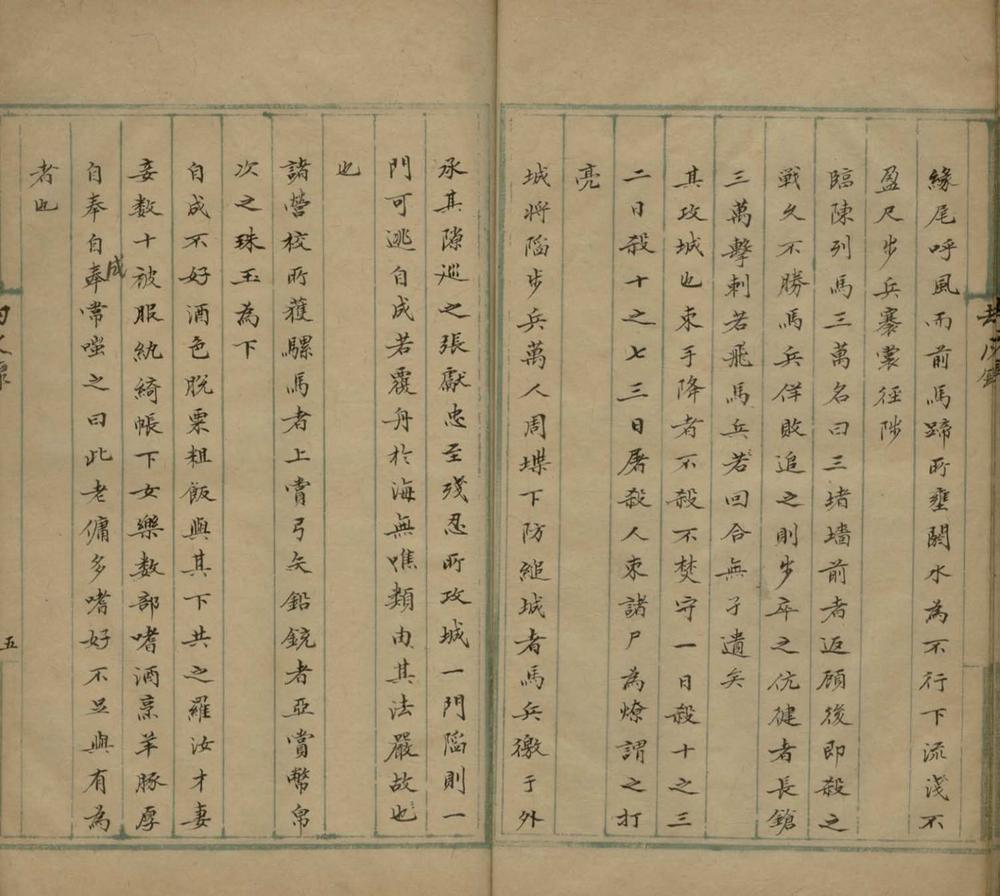 緣尾呼風而前馬蹄所壅閼水為不行下流淺不
盈尺步兵褰裳徑陟
臨陳列馬三萬名曰三堵墻前者返顧後即殺之
戰久不勝馬兵佯敗追之則步卒之伉健者長鎗
三萬擊刺若飛馬兵若回合無孑遺矣
其攻城也束手降者不殺不焚守一日殺十之三
二日殺十之七三日屠殺人束諸尸為燎謂之打
亮
城將陷步兵萬人周堞下防縋城者馬兵徼于外
承其隙巡之張獻忠至殘忍所攻城一門陷則一
門可逃自成若覆舟於海無噍類由其法嚴故也
也
諸營校所獲騾馬者上賞弓矢鉛銃者亞賞幣帛
次之珠玉為下
自成不好酒色脫粟粗飯與其下共之羅汝才妻
妾數十被服紈綺帳下女樂數部嗜酒烹羊豚厚
自奉自奉成嘗嗤之曰此老傭多嗜好不足與有為
者也
五